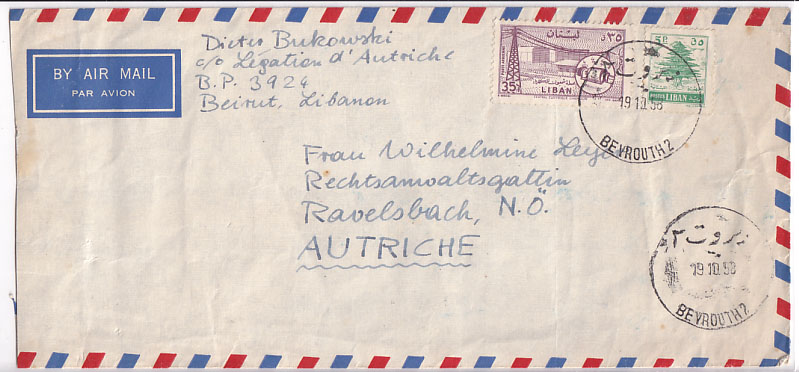 BY AIR MAIL
PAR AVION
Dieter Bukowski
c/o Légation d'Autriche
B.P. 3924
Beirut, Libanon
لبنان ٣٥
35P
LIBAN
5P. ٥ق
LIBAN
19 10 58
BEYROUTH 2
Frau Wilhelmine
Rechtsanwaltsgattin
Ravelsbach, N.Ö.
AUTRICHE
بيروت ٢
19 10 58
BEYROUTH 2